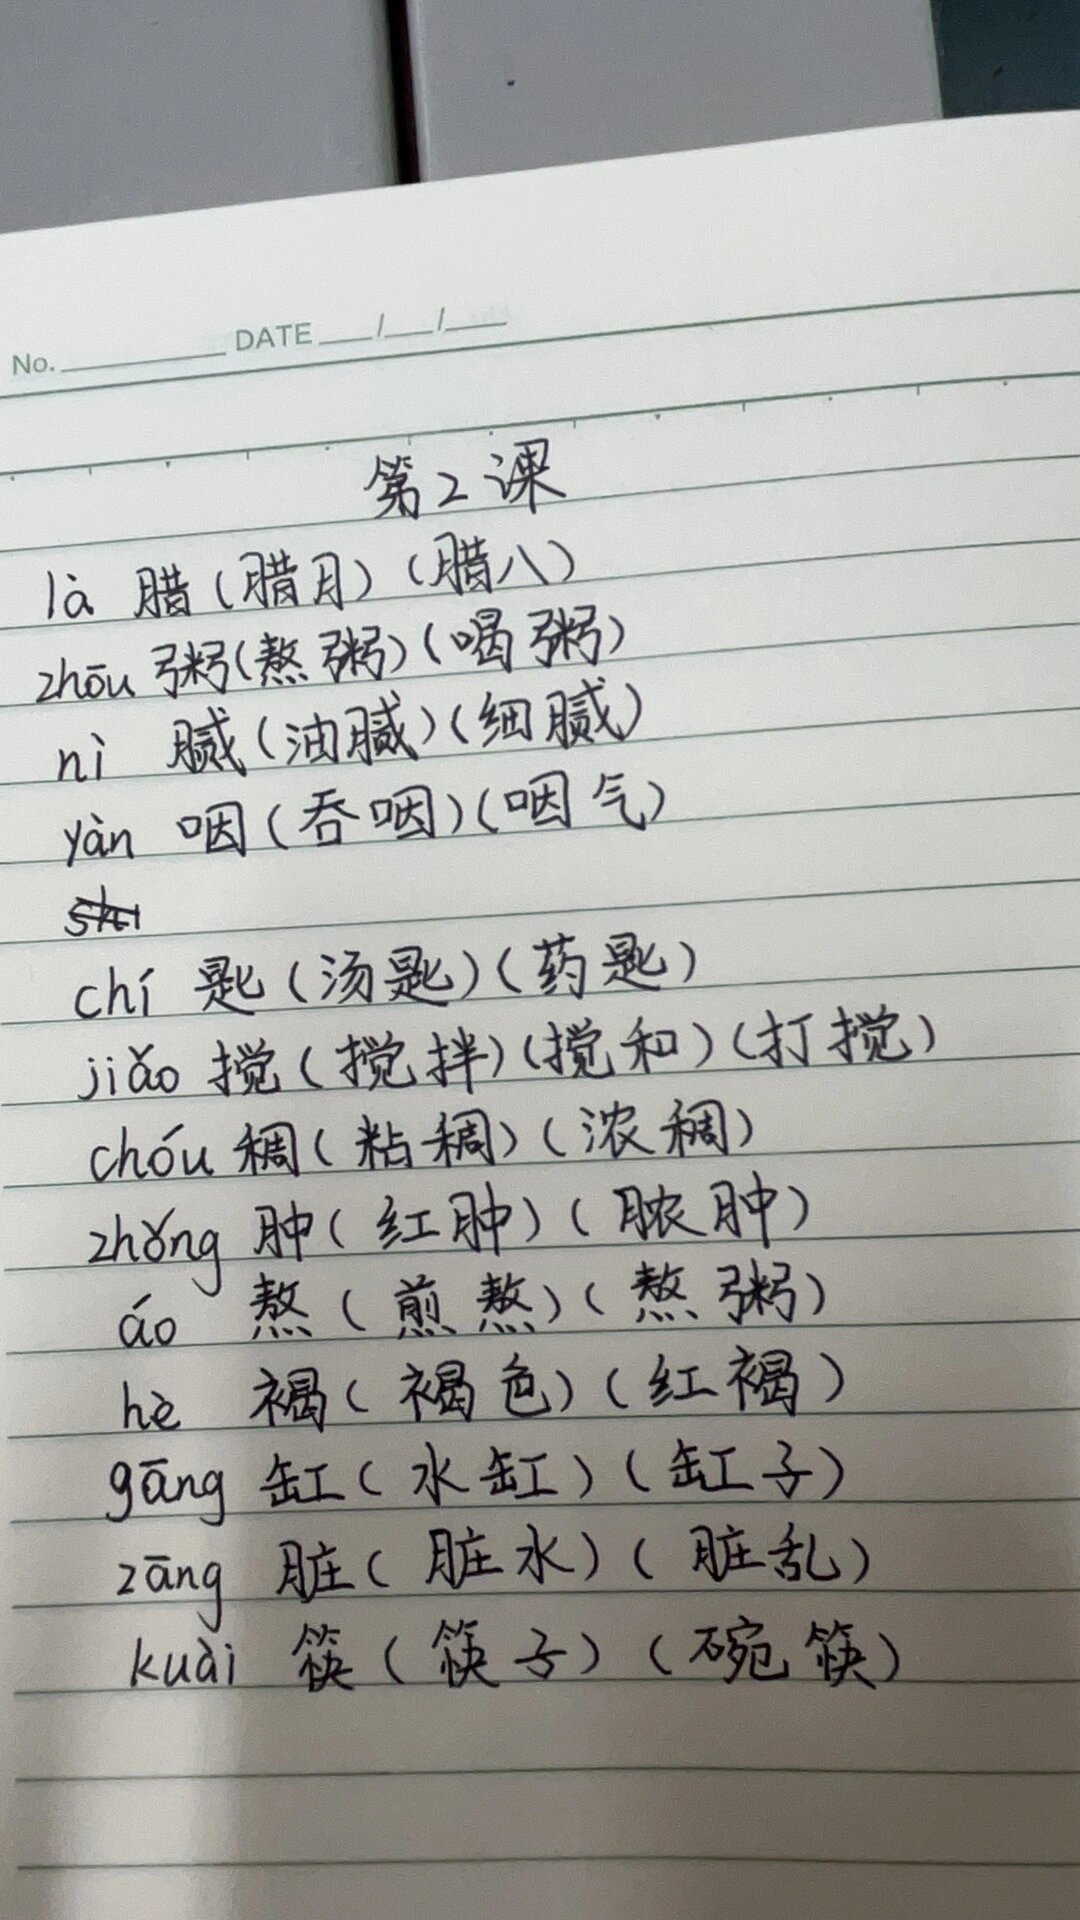 No. DATE / /
第2课
là 腊(腊月)(腊八)
zhōu 粥(熬粥)(喝粥)
nì 腻(油腻)(细腻)
yàn 咽(吞咽)(咽气)
chí 匙(汤匙)(药匙)
jiǎo 搅(搅拌)(搅和)(打搅)
chóu 稠(粘稠)(浓稠)
zhǒng 肿(红肿)(脓肿)
áo 熬(煎熬)(熬粥)
hè 褐(褐色)(红褐)
gāng 缸(水缸)(缸子)
zāng 脏(脏水)(脏乱)
kuài 筷(筷子)(碗筷)